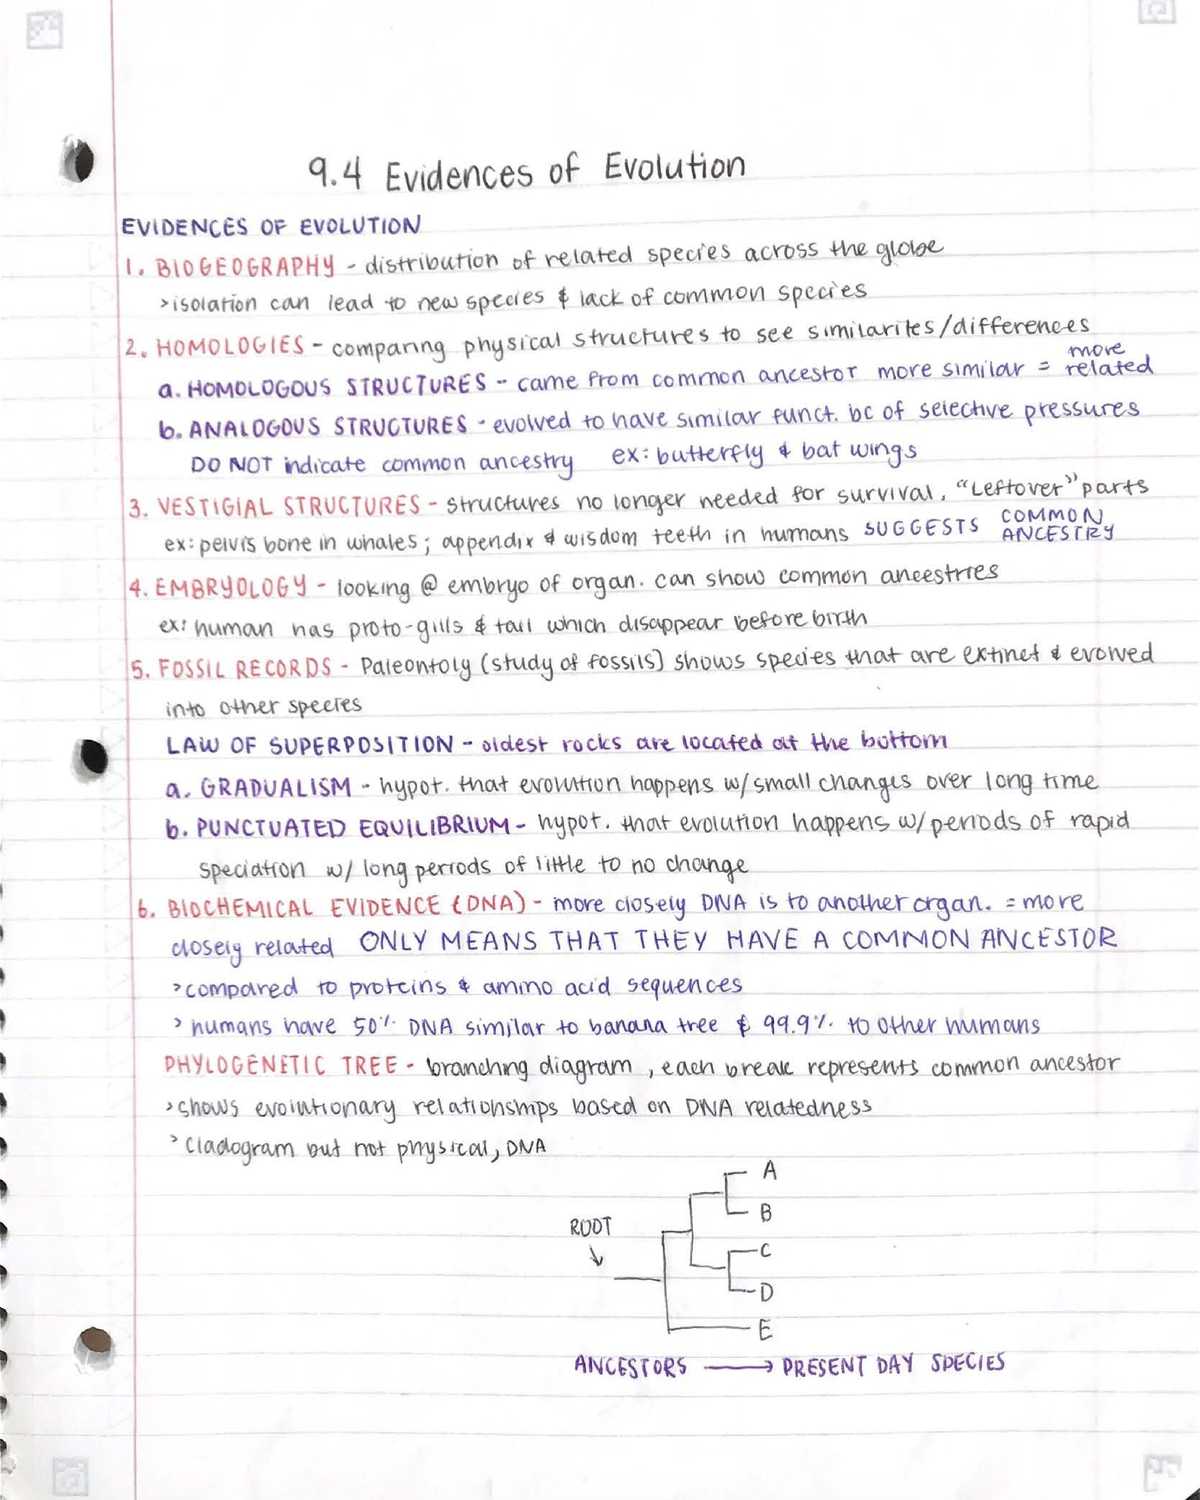 9.4 Evidences of Evolution
EVIDENCES OF EVOLUTION
1. BIOGEOGRAPHY - distribution of related species across the globe
>isolation can lead to new species & lack of common species
2. HOMOLOGIES - comparing physical structures to see similarites/differences
a. HOMOLOGOUS STRUCTURES - came from common ancestor more similar = more related
b. ANALOGOUS STRUCTURES - evolved to have similar funct. bc of selective pressures
DO NOT indicate common ancestry ex: butterfly & bat wings
3. VESTIGIAL STRUCTURES - structures no longer needed for survival, "Leftover" parts
ex: pelvis bone in whales; appendix & wisdom teeth in humans SUGGESTS COMMON ANCESTRY
4. EMBRYOLOGY - looking @ embryo of organ. can show common ancestries
ex: human has proto-gills & tail which disappear before birth
5. FOSSIL RECORDS - Paleontoly (study of fossils) shows species that are extinct & evolved
into other species
LAW OF SUPERPOSITION - oldest rocks are located at the bottom
a. GRADUALISM - hypot. that evolution happens w/ small changes over long time
b. PUNCTUATED EQUILIBRIUM - hypot. that evolution happens w/ periods of rapid
speciation w/ long periods of little to no change
6. BIOCHEMICAL EVIDENCE (DNA) - more closely DNA is to another organ. = more
closely related ONLY MEANS THAT THEY HAVE A COMMON ANCESTOR
>compared to proteins & amino acid sequences
> humans have 50% DNA similar to banana tree & 99.9% to other humans
PHYLOGENETIC TREE - branching diagram, each break represents common ancestor
>shows evolutionary relationships based on DNA relatedness
> cladogram but not physical, DNA
A
B
ROOT
C
D
E
ANCESTORS → PRESENT DAY SPECIES